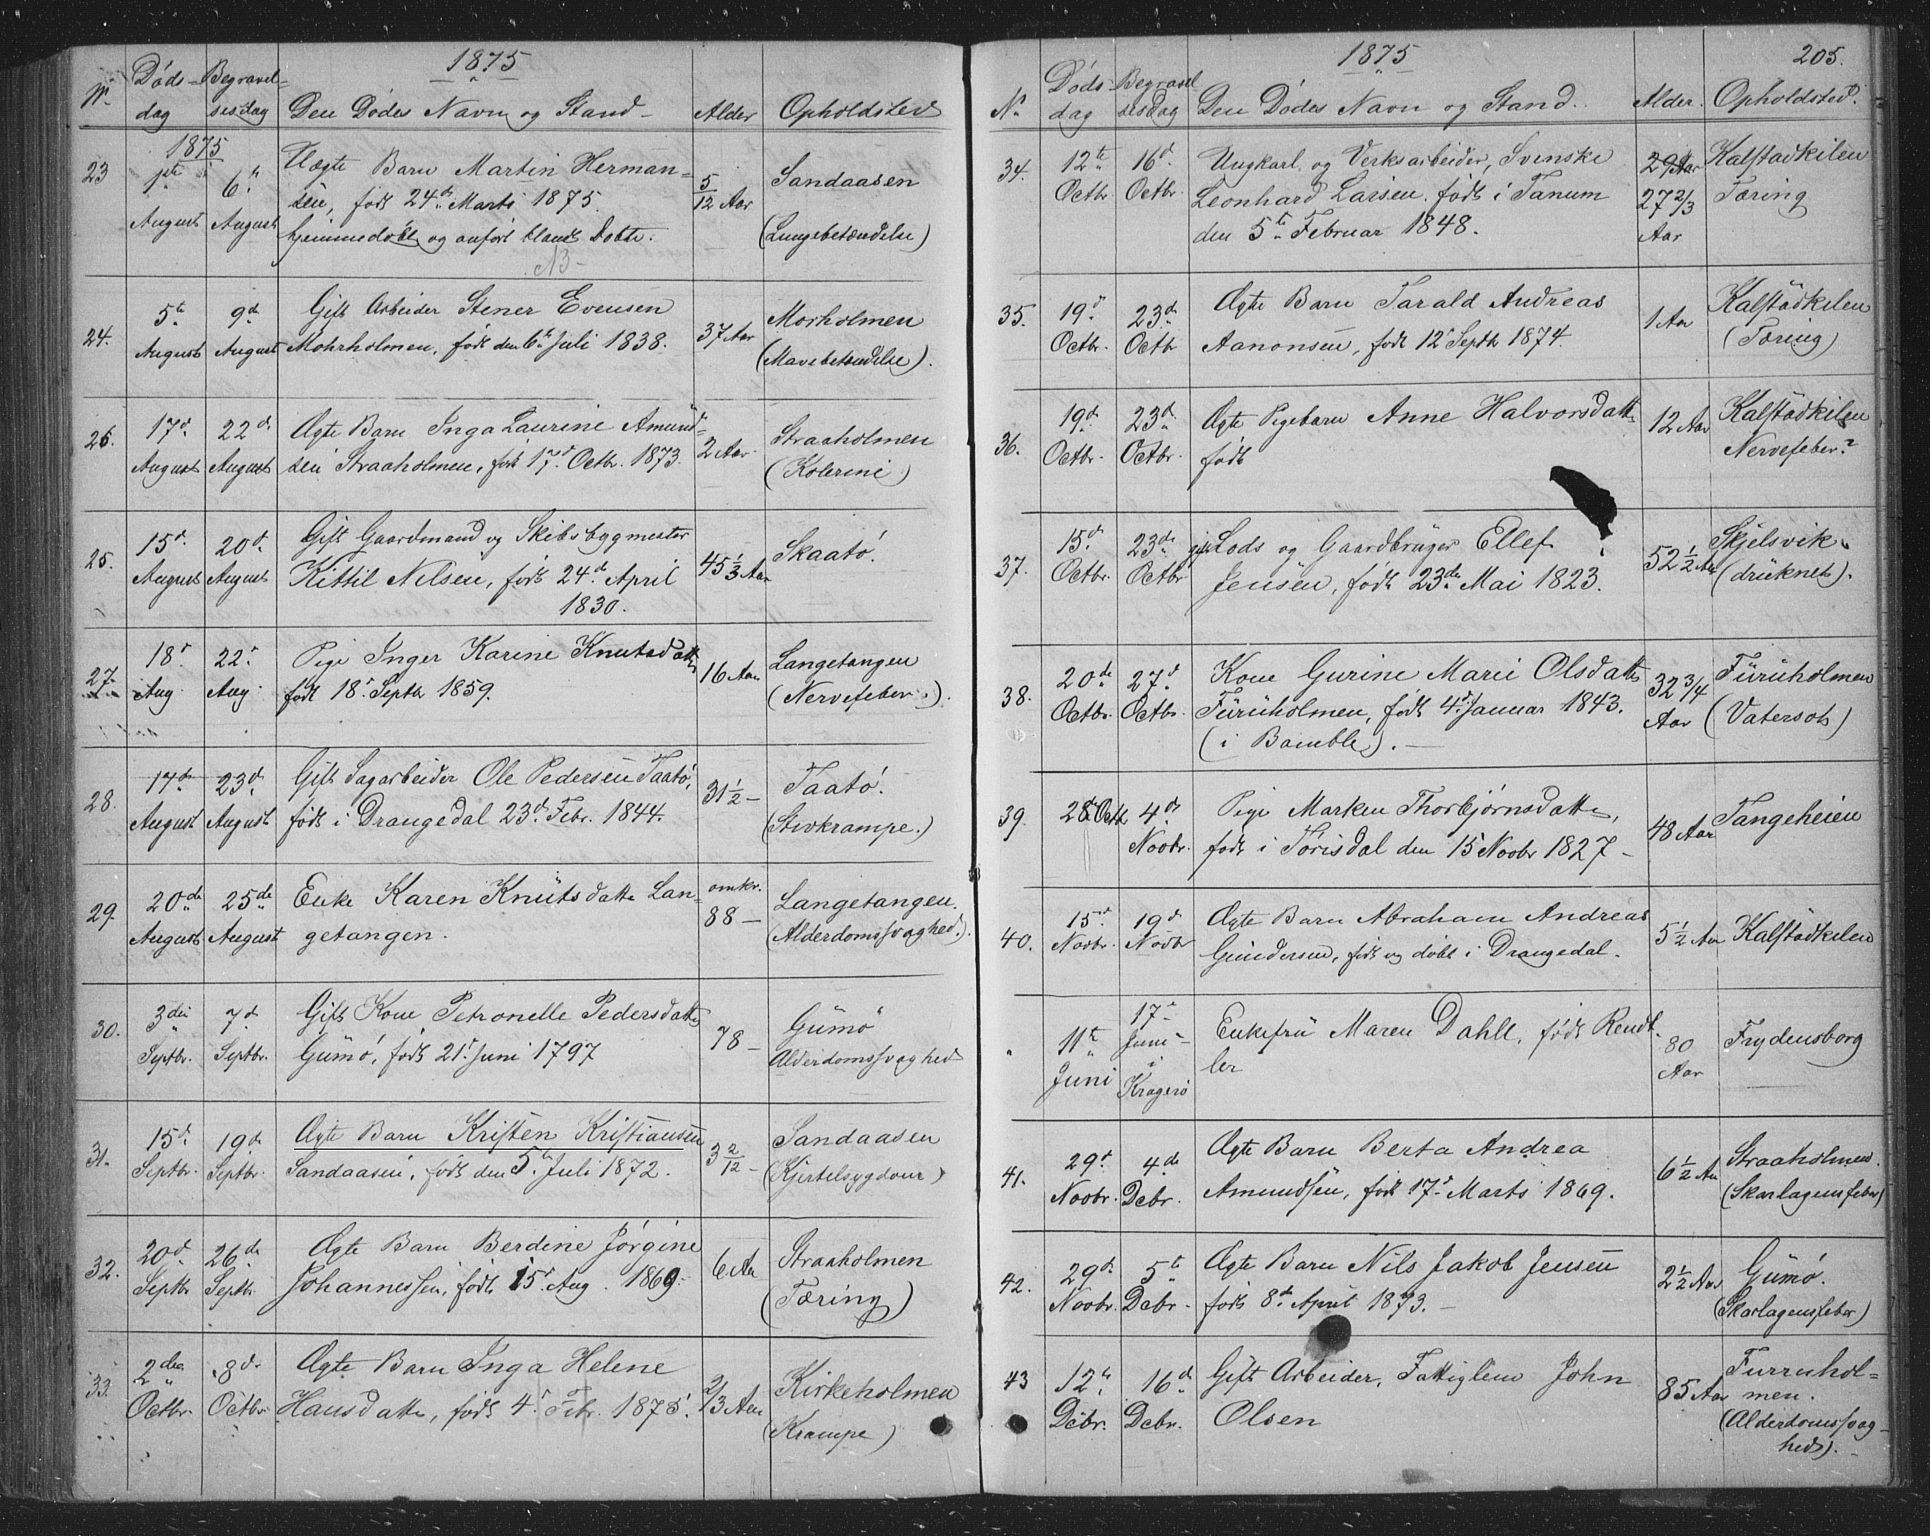 1875
No.
Døds-
dag
Begravel-
sesdag
Den Dødes Navn og Stand
Alder
Opholdsted
1875
23
1ste August
6te August
Uægte Barn Martin Herman-
sen, født 24de Marts 1875.
hjemmedøbt og anført blandt Døbte.
NB
5/12 Aar
Sandaasen
(Lungebetændelse)
24.
5te August
9de August
Gift Arbeider Stener Evensen
Mohrholmen, født den 6te Juli 1838.
37 Aar
Morholmen
(Mavebetændelse).
25.
17de August
22de August
Ægte Barn Inga Laurine Amund-
sen Straaholmen, født 17de Octbr. 1873.
2 Aar
Straaholmen
(Kolerine)
26.
15de August
20de August
Gift Gaardmand og Skibsbygmester
Kittil Nilsen, født 24de April
1830.
45 1/3 Aar
Skaatø.
27.
18de Aug.
22de Aug.
Pige Inger Karine Knutsdatter
født 18de Septbr 1859.
16 Aar
Langetangen
(Nervefeber.)
28.
17de August
23de August
Gift Sagarbeider Ole Pedersen Taatø,
født i Drangedal 23de Febr. 1844.
31 1/2 –
Taatø.
(Stivkrampe.)
29
20de August
25de August
Enke Karen Knutsdatter Lan-
getangen.
omkr.
88 –
Langetangen.
(Alderdomssvaghed.)
30.
3die Septbr.
7de Septbr.
Gift Kone Petronelle Pedersdatter
Gumø, født 21de Juni 1797
78 –
Gumø
Alderdomssvaghed
31.
15de Septbr.
19de Septbr.
Ægte Barn Kristen Kristiansen
Sandaasen, født den 5te Juli 1872.
3 2/12 –
Sandaasen
(Kjertelsygdom)
32.
20de Septbr
26de Septbr.
Ægte Barn Berdine Jørgine
Johannessen, født 15de Aug. 1869.
6 Aar
Straaholmen
(Tæring)
33.
2den Octbr.
8de Octbr.
Ægte Barn Inga Helene
Hansdatter, født 4de Febr. 1875.
2/3 Aar
Kirkeholmen
(Krampe)
1875
205.
No.
Døds-
dag
Begravel-
sesdag
Den Dødes Navn og Stand.
Alder.
Opholdsted.
34.
12te Octbr.
16de Octbr.
Ungkarl og Verksarbeider, Svenske
Leonhard Larsen, født i Tanum
den 5te Februar 1848.
29 Aar
27 2/3
Aar
Kalstadkilen
Tæring
35.
19de Octbr.
23de Octbr
Ægte Barn Tarald Andreas
Aanonsen, født 12te Septbr 1874.
1 Aar
Kalstadkilen
(Tæring)
36.
19de Octbr.
23de Octbr.
Ægte Pigebarn Anne Halvorsdatter
født
12 Aar
Kalstadkilen
Nervefeber?
37.
15de Octbr.
23de Octbr
gift Lods og Gaardbruger Ellef
Jensen, født 23de Mai 1823.
52 1/2 Aar
Skjelsvik.
(druknet).
38.
20de Octbr.
27de Octbr.
Kone Gurine Marie Olsdatter
Furuholmen, født 4de Januar 1843.
(i Bamble). –
32 3/4
Aar
Furuholmen
(Vatersot)
39.
28de Octbr
4de Novbr.
Pige Marken Thorbjørnsdatter,
født i Tørisdal den 15 Novbr 1827 –
48 Aar
Tangeheien
40.
15de Novbr.
19de Novbr
Ægte Barn Abraham Andreas
Gundersen, født og døbt i Drangedal.
5 1/2 Aar
Kalstadkilen
"
11te Juni
17de
Juni
i
Kragerø
Enkefru Maren Dahll, født Rendt-
ler
80
Aar
Frydensborg
41.
29de Novbr.
4de Debr.
Ægte Barn Berta Andrea
Amundsen, født 17de Marts 1869.
6 1/2 Aar
Straaholmen.
(Skarlagensfeber)
42.
29de Novbr.
5te Debr.
Ægte Barn Nils Jakob Jensen
født 8de April 1873. –
2 1/2 Aar
Gumø.
(Skarlagensfeber)
43
12te Debr.
16de Debr.
Gift Arbeider, Fattiglem John
Olsen
85 Aar
Furruhol-
men.
(Alderdomssvag-
hed). –